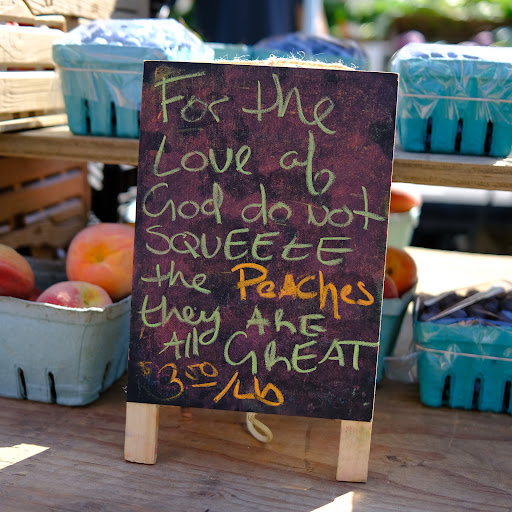 For the
Love of
God do not
SQUEEZE
the Peaches
they ARE
All GREAT
$3.50/Lb